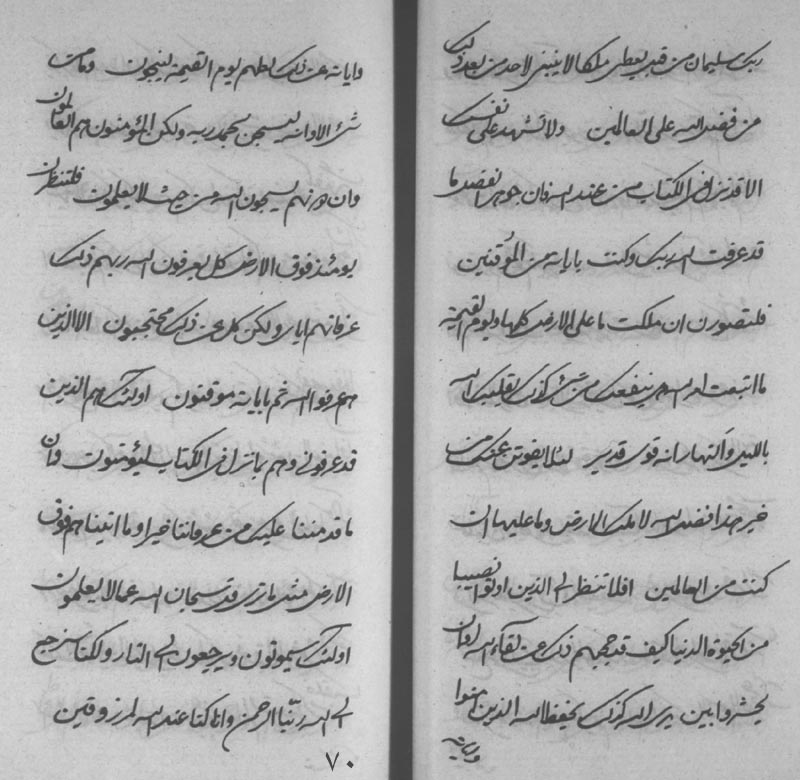 ربك سليمان من قبل يعطى ملكا لا ينبغى لاحد من بعد ذلك
من فضل الله على العالمين ولا تشهد على نفسك
الا قد نزل فى الكتاب من عند الله فان جوهر الفضل ما
قد عرفت الله ربك وكنت باياته من الموقنين
فلتصورن ان ملكت ما على الارض كلها ويوم القيمة
ما اتبعت امر الله هل ينفعك من شئ كذلك يقلبك الله
بالليل والنهار انه قوى قدير لئلا يفوتن عنك من
خير هذا فضل الله لا ملك الارض وما عليها ان
كنت من العالمين افلا تنظر الى الذين اوتوا نصيبا
من الحيوة الدنيا كيف قد حجبهم ذلك عن لقاء الله وان
يحشروا بين يدى الله كذلك يحفظ الله الذين امنوا
واياته عن ذلك لعلهم يوم القيمة ينجون وما من
شئ الا وانه ليسبحن بحمد ربه ولكن المؤمنون هم العالمون
وان دونهم يسبحون الله من حيث لا يعلمون فلتنظرن
يومئذ فوق الارض كل يعرفون الله ربهم ذلك
عرفانهم اياى ولكن كل عن ذلك محتجبون الا الذين
هم عرفوا الله ثم باياته موقنون اولئك هم الذين
قد عرفونى وهم بما نزل فى الكتاب ليؤمنون وان
ما قد مننا عليك من عرفاننا خير او ما اتينا هم فوق
الارض مثل ما ترى قل سبحان الله عما لا يعلمون
اولئك سيموتون ويرجعون الى النار ولكنا سنرجع
الى الله ربنا الرحمن وانا كنا عند الله لمرزوقين
٧٠